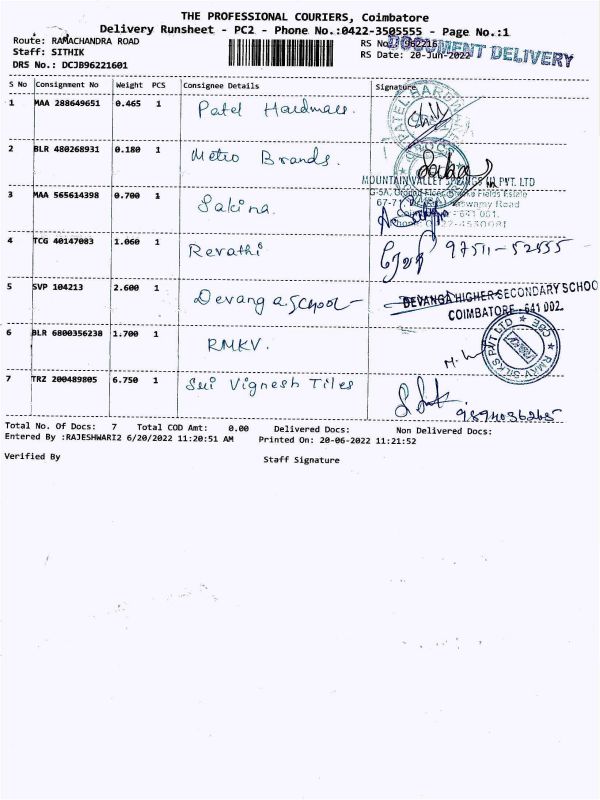 THE PROFESSIONAL COURIERS, Coimbatore
Delivery Runsheet - PC2 - Phone No.:0422-3505555 - Page No.:1
Route: RAMACHANDRA ROAD
RS No.: 962216
DOCUMENT DELIVERY
Staff: SITHIK
RS Date: 20-Jun-2022
DRS No.: DCJB96221601
S No Consignment No Weight PCS Consignee Details Signature
1 MAA 288649651 0.465 1 Patel Hardmass.
2 BLR 480268931 0.180 1 Metro Brands.
MOUNTAIN VALLEY SPRINGS PVT. LTD
3 MAA 565614398 0.700 1 Sakina.
4 TCG 40147083 1.060 1 Revathi 97511-52555
5 SVP 104213 2.600 1 Devanga School-
DEVANGA HIGHER SECONDARY SCHOO
COIMBATORE - 641 002.
6 BLR 6800356238 1.700 1 RMKV.
RMKV SILKS PVT LTD ★ CBE ★
7 TRZ 200489805 6.750 1 Sui Vignesh Tiles
9894036265
Total No. Of Docs: 7 Total COD Amt: 0.00 Delivered Docs: Non Delivered Docs:
Entered By :RAJESHWARI2 6/20/2022 11:20:51 AM Printed On: 20-06-2022 11:21:52
Verified By Staff Signature